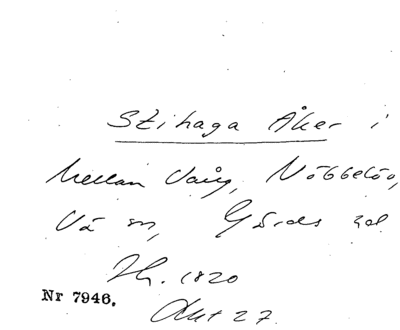 Stihaga Åker i
Mellan Vång, Nöbbelöv,
Vä sn, Gärds hd
Sk. 1820
Akt 27.
Nr 7946.